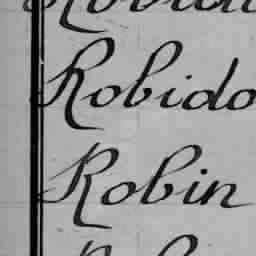 Robido
Robin